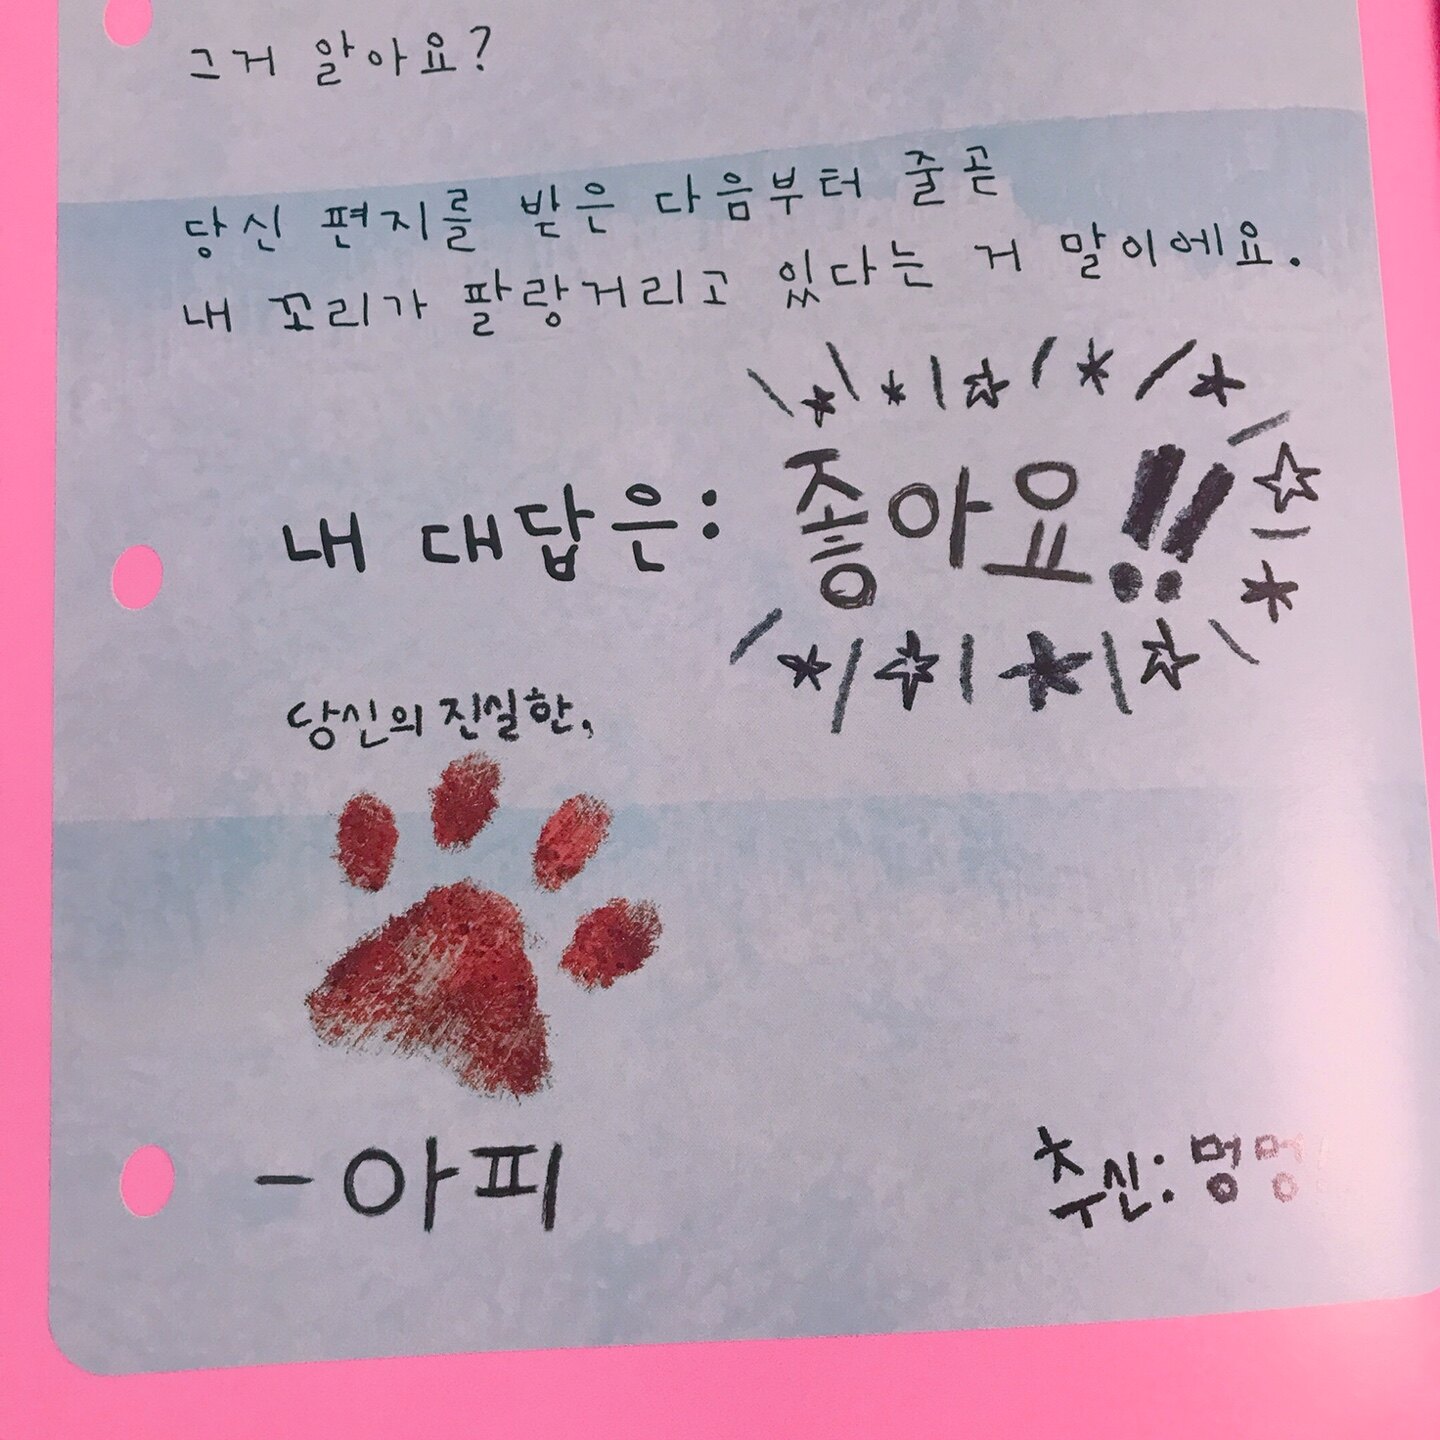 그거 알아요?
당신 편지를 받은 다음부터 줄곧
내 꼬리가 팔랑거리고 있다는 거 말이에요.
내 대답은: 좋아요!!
당신의 진실한,
- 아피
추신: 멍멍